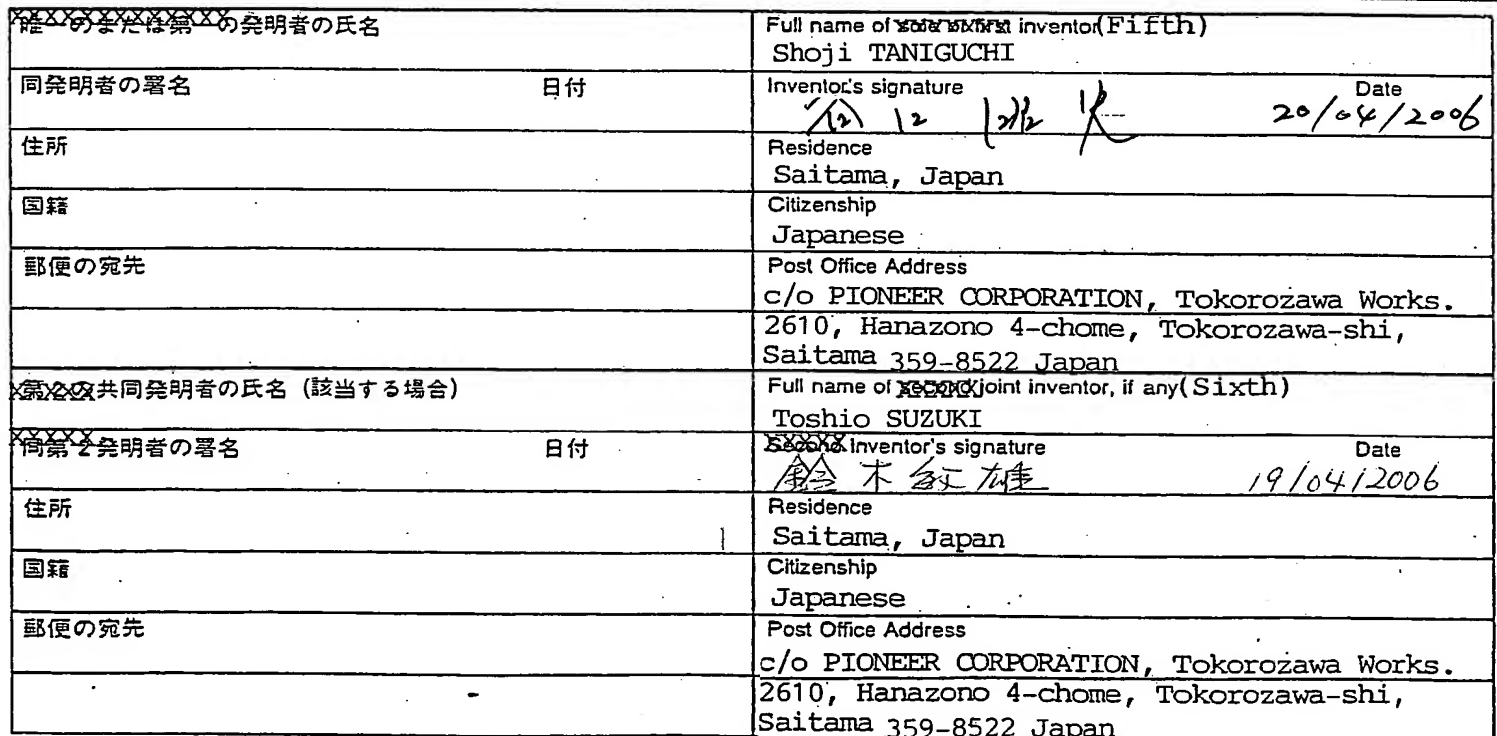 唯一のまたは第一の発明者の氏名
Full name of sole or first inventor(Fifth)
Shoji TANIGUCHI
同発明者の署名 日付
Inventor's signature Date
20/04/2006
住所
Residence
Saitama, Japan
国籍
Citizenship
Japanese
郵便の宛先
Post Office Address
c/o PIONEER CORPORATION, Tokorozawa Works.
2610, Hanazono 4-chome, Tokorozawa-shi,
Saitama 359-8522 Japan
第2の共同発明者の氏名 (該当する場合)
Full name of second joint inventor, if any(Sixth)
Toshio SUZUKI
同第2発明者の署名 日付
Second inventor's signature Date
鈴木敏雄 19/04/2006
住所
Residence
Saitama, Japan
国籍
Citizenship
Japanese
郵便の宛先
Post Office Address
c/o PIONEER CORPORATION, Tokorozawa Works.
2610, Hanazono 4-chome, Tokorozawa-shi,
Saitama 359-8522 Japan